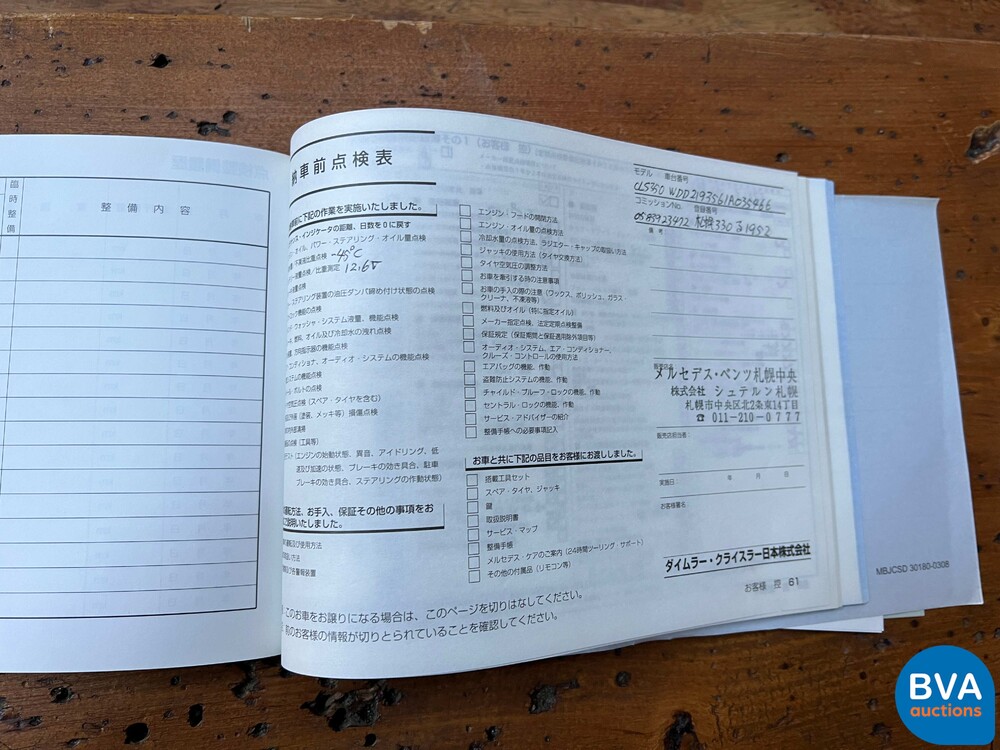 臨時整備
整備内容
車前点検表
に下記の作業を実施いたしました。
インジケータの距離、日数を0に戻す
オイル、パワー・ステアリング・オイル量点検
-45℃
比重測定 12.6V
ステアリング装置の油圧ダンパ締め付け状態の点検
機能の点検
ウォッシャ・システム液量、機能点検
燃料、オイル及び冷却水の洩れ点検
方向指示器の機能点検
コンディショナ、オーディオ・システムの機能点検
システムの機能点検
ボルトの点検
圧点検（スペア・タイヤを含む）
（塗装、メッキ等）損傷点検
点検（工具等）
テスト（エンジンの始動状態、異音、アイドリング、低
速及び加速の状態、ブレーキの効き具合、駐車
ブレーキの効き具合、ステアリングの作動状態）
方法、お手入、保証その他の事項をお
いたしました。
及び使用方法
方法
及び各警報装置
エンジン・フードの開閉方法
エンジン、オイル量の点検方法
冷却水量の点検方法、ラジエター・キャップの取扱い方法
ジャッキの使用方法（タイヤ交換方法）
タイヤ空気圧の調整方法
お車を牽引する時の注意事項
お車の手入の際の注意（ワックス、ポリッシュ、ガラス
クリーナ、不凍液等）
燃料及びオイル（特に指定オイル）
メーカー指定点検、法定定期点検整備
保証規定（保証期間と保証適用除外項目等）
オーディオ・システム、エア・コンディショナー、
クルーズ・コントロールの使用方法
エアバッグの機能、作動
盗難防止システムの機能、作動
チャイルド・プルーフ・ロックの機能、作動
セントラル・ロックの機能、作動
サービス・アドバイザーの紹介
整備手帳への必要事項記入
お車と共に下記の品目をお客様にお渡ししました。
搭載工具セット
スペア・タイヤ、ジャッキ
鍵
取扱説明書
サービス・マップ
整備手帳
メルセデス・ケアのご案内（24時間ツーリング・サポート）
その他の付属品（リモコン等）
モデル 車台番号
CLS350 WDD2193561A035966
コミッションNo. 登録番号
0583923472 札幌330
備考
販売店名
メルセデス・ベンツ札幌中央
株式会社 シュテルン札幌
札幌市中央区北2条東14丁目
☎ 011-210-0777
販売店担当者：
実施日： 年 月 日
お客様署名：
ダイムラー・クライスラー日本株式会社
お客様 控 61
このお車をお譲りになる場合は、このページを切りはなしてください。
前のお客様の情報が切りとられていることを確認してください。
MBJCSD 30180-0308
BVA
auctions